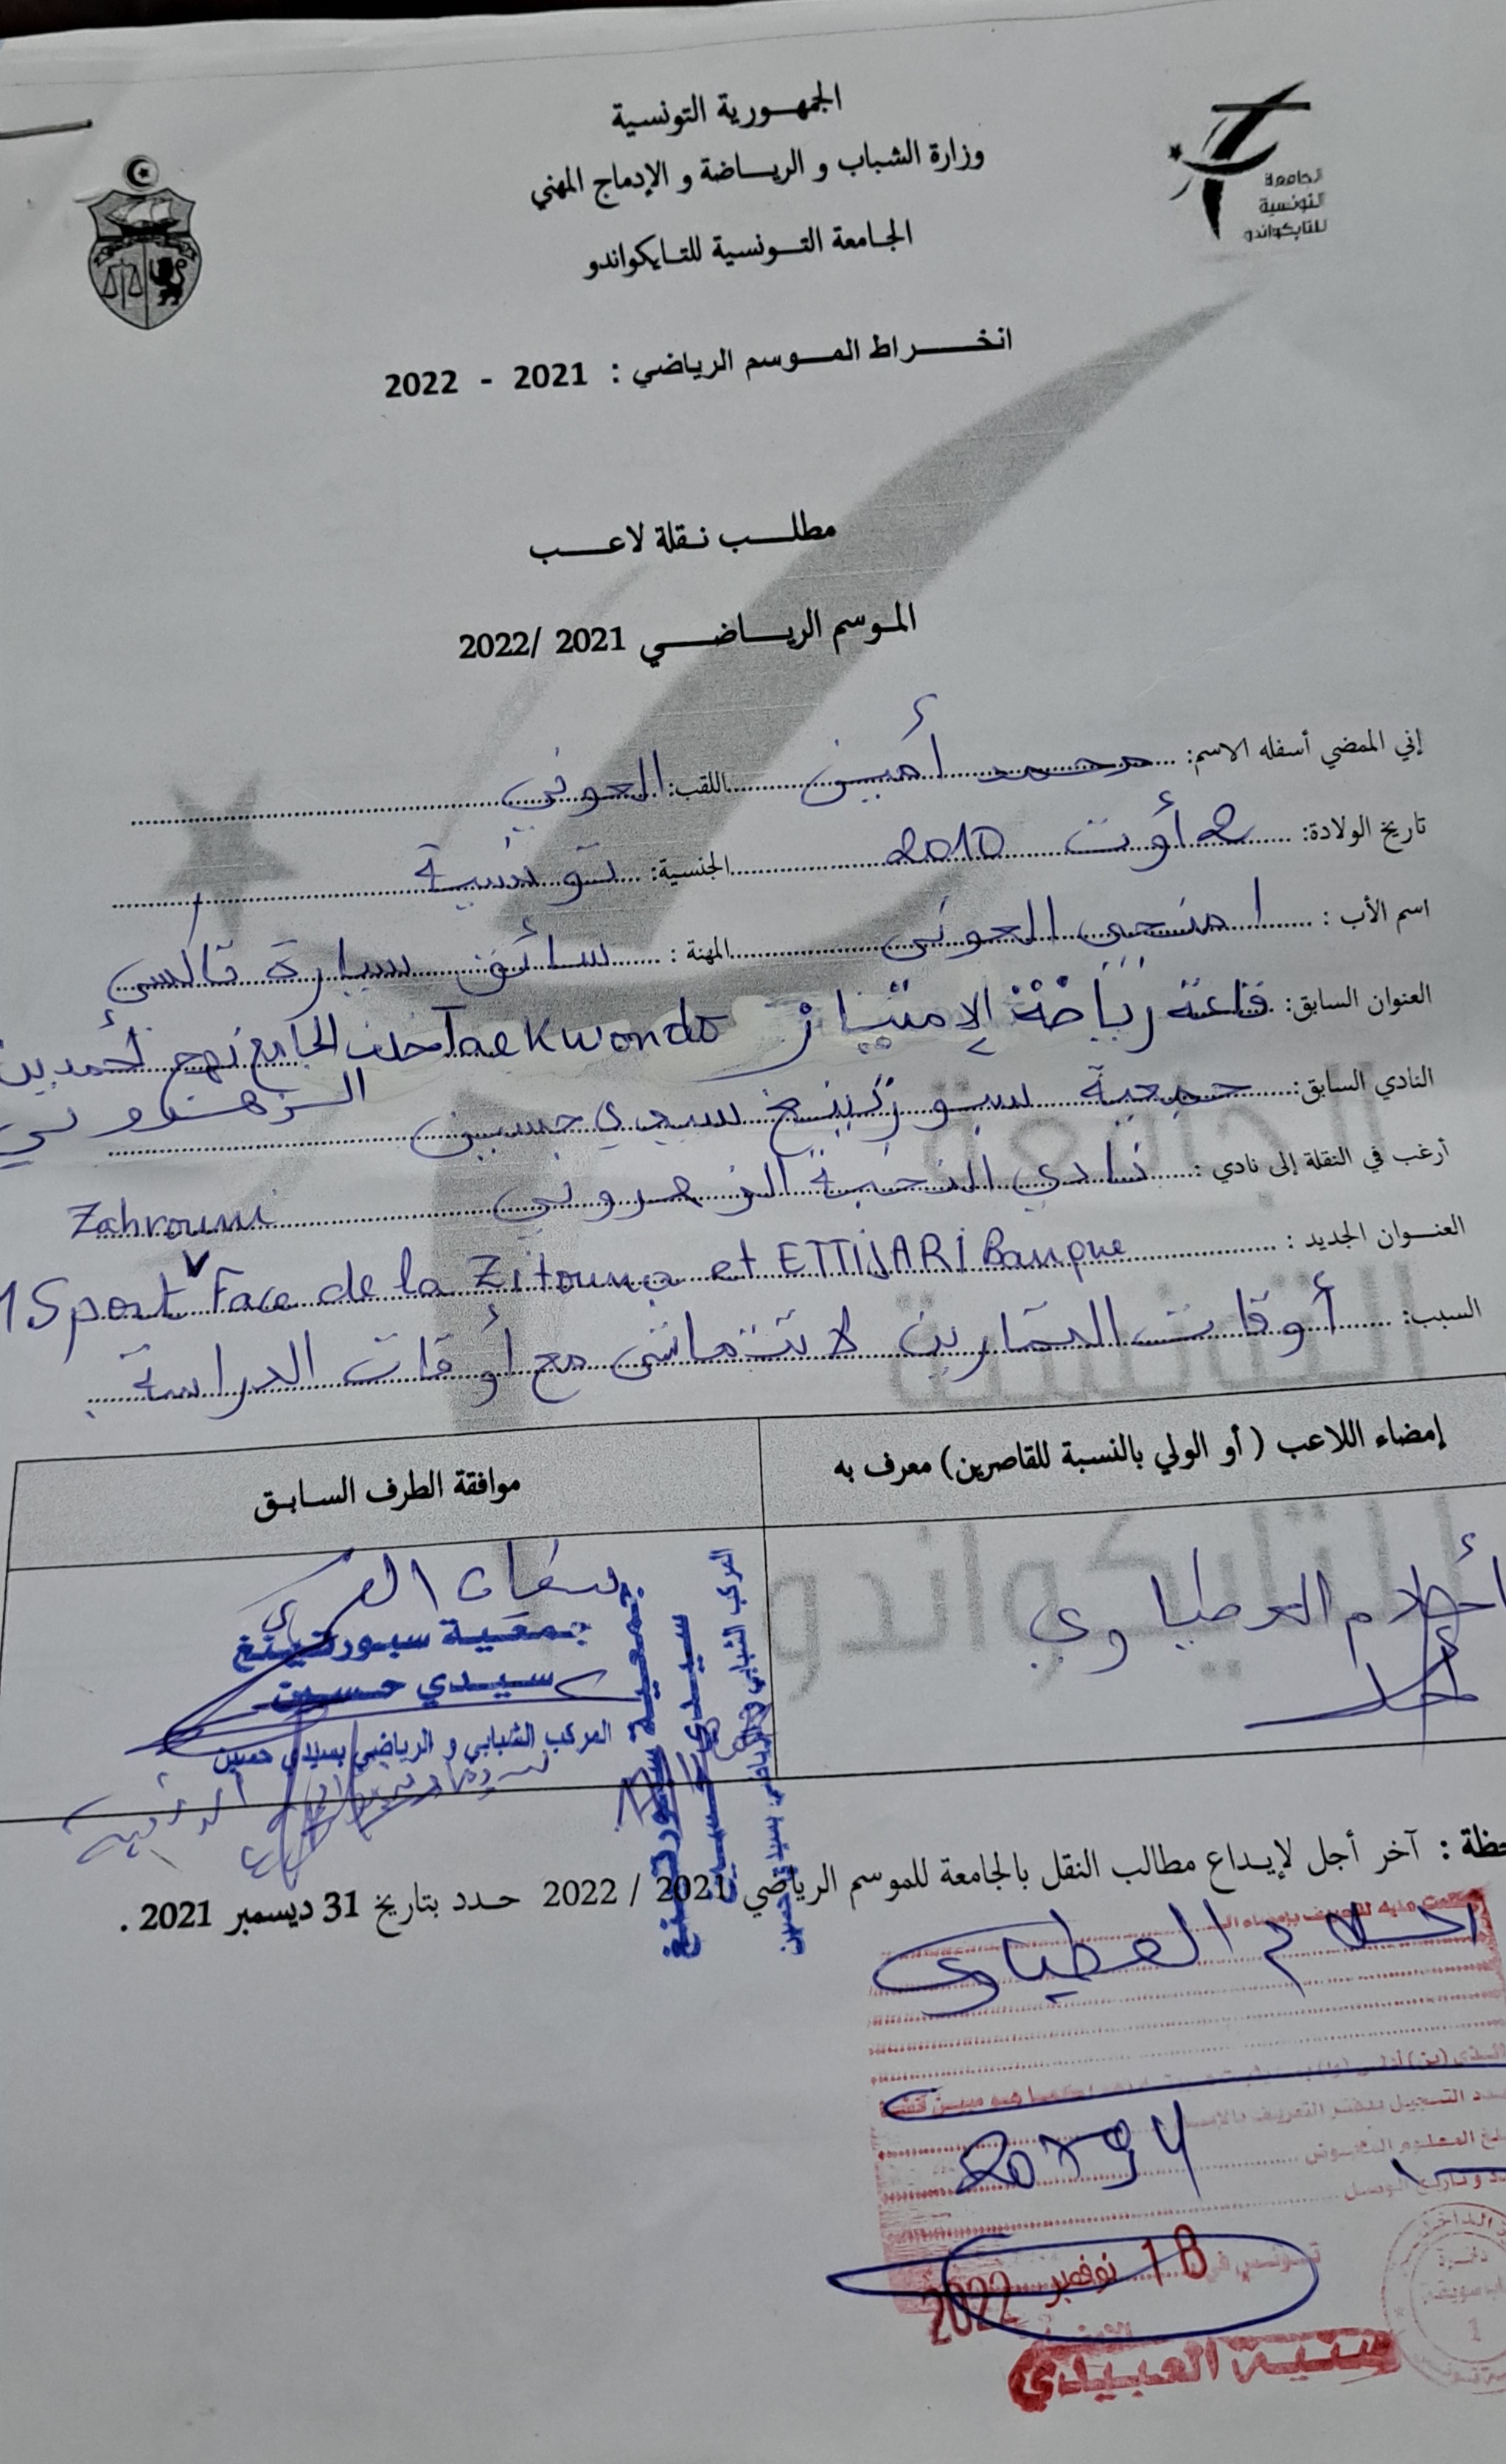 الجمهورية التونسية
وزارة الشباب و الرياضة و الإدماج المهني
الجامعة التونسية للتايكواندو
الجامعة
التونسية
للتايكواندو
انخراط الموسم الرياضي : 2021 - 2022
مطلب نقلة لاعب
الموسم الرياضي 2021 /2022
إني الممضي أسفله الاسم: محمد أمين اللقب: العوني
تاريخ الولادة: 2 أوت 2010 الجنسية: تونسية
اسم الأب : المنجي العوني المهنة : سائق سيارة تاكسي
العنوان السابق: قاعة رياضة الإمتياز Taekwondo حذو الجامع نهج أحمد بن
الزهروني
النادي السابق: جمعية سبورتينغ سيدي حسين
أرغب في النقلة إلى نادي : نادي النخبة الزهروني
Zahrouni
العنوان الجديد : Sport Face de la Zitouna et ETTIJARI Banque
السبب: أوقات التمارين لا تتماشى مع أوقات الدراسة
إمضاء اللاعب ( أو الولي بالنسبة للقاصرين) معرف به
موافقة الطرف السابق
أحلام العطياوي
جمعية سبورتينغ
سيدي حسين
المركب الشبابي و الرياضي بسيدي حسين
جمعية سبورتينغ
سيدي حسين
المركب الشبابي و الرياضي بسيدي حسين
حظة : آخر أجل لإيداع مطالب النقل بالجامعة للموسم الرياضي 2021 / 2022 حدد بتاريخ 31 ديسمبر 2021 .
احلام العطياوي
18 نوفمبر 2022
سنية العبيدي